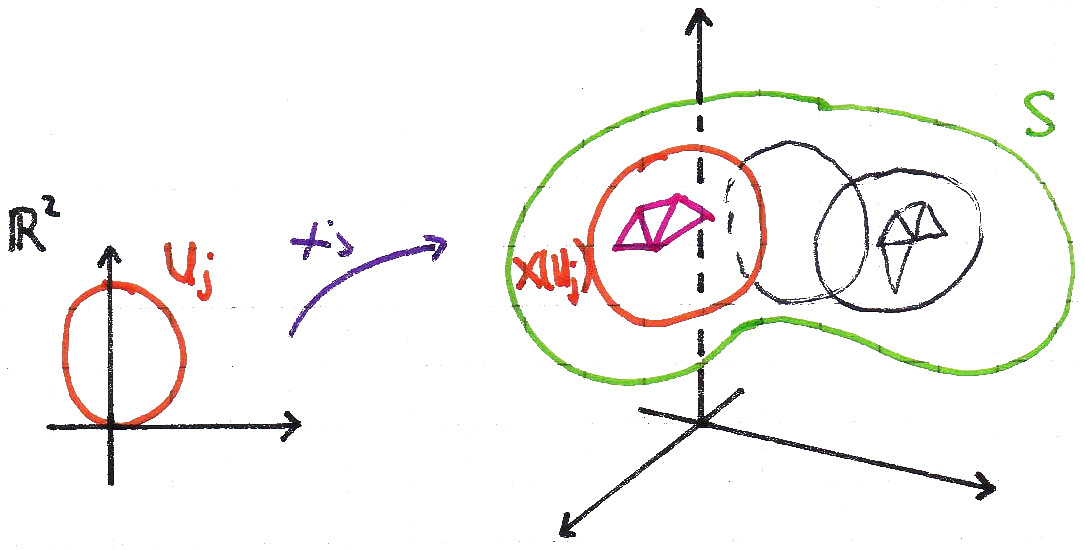 S
ℝ²
U_j
x_j
X(U_j)